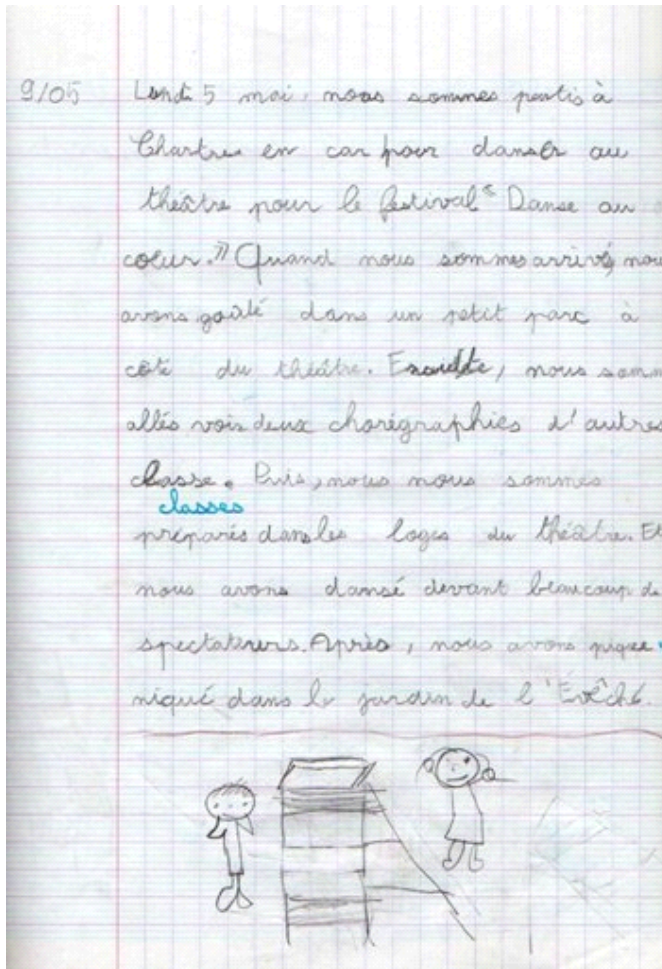 9/05 Lundi 5 mai, nous sommes partis à
Chartres en car pour danser au
théâtre pour le festival "Danse au
coeur." Quand nous sommes arrivés nous
avons goûté dans un petit parc à
côté du théâtre. Ensuite, nous somm
allés voir deux chorégraphies d'autres
classe. Puis, nous nous sommes
classes
préparés dans les loges du théâtre. Et
nous avons dansé devant beaucoup de
spectateurs. Après, nous avons pique-
niqué dans le jardin de l'Évêché.